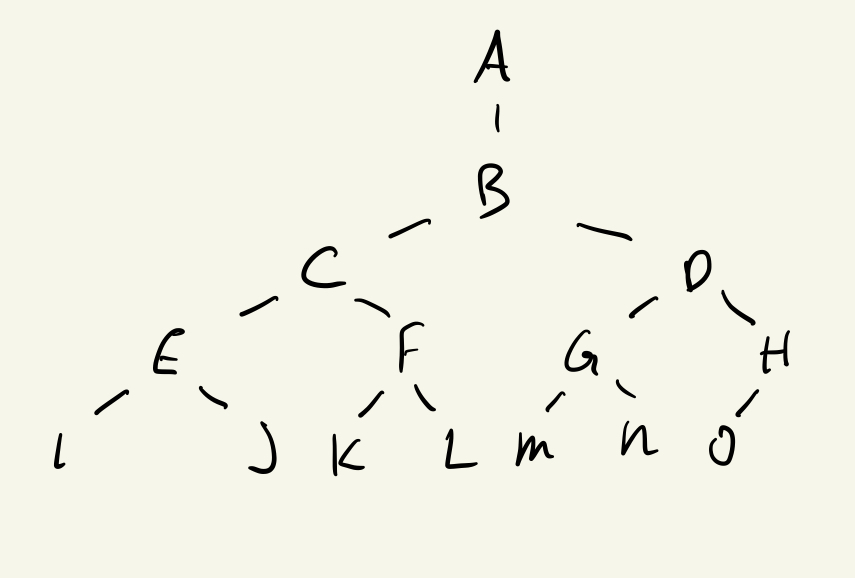 A
B
C D
E F G H
I J K L m n O